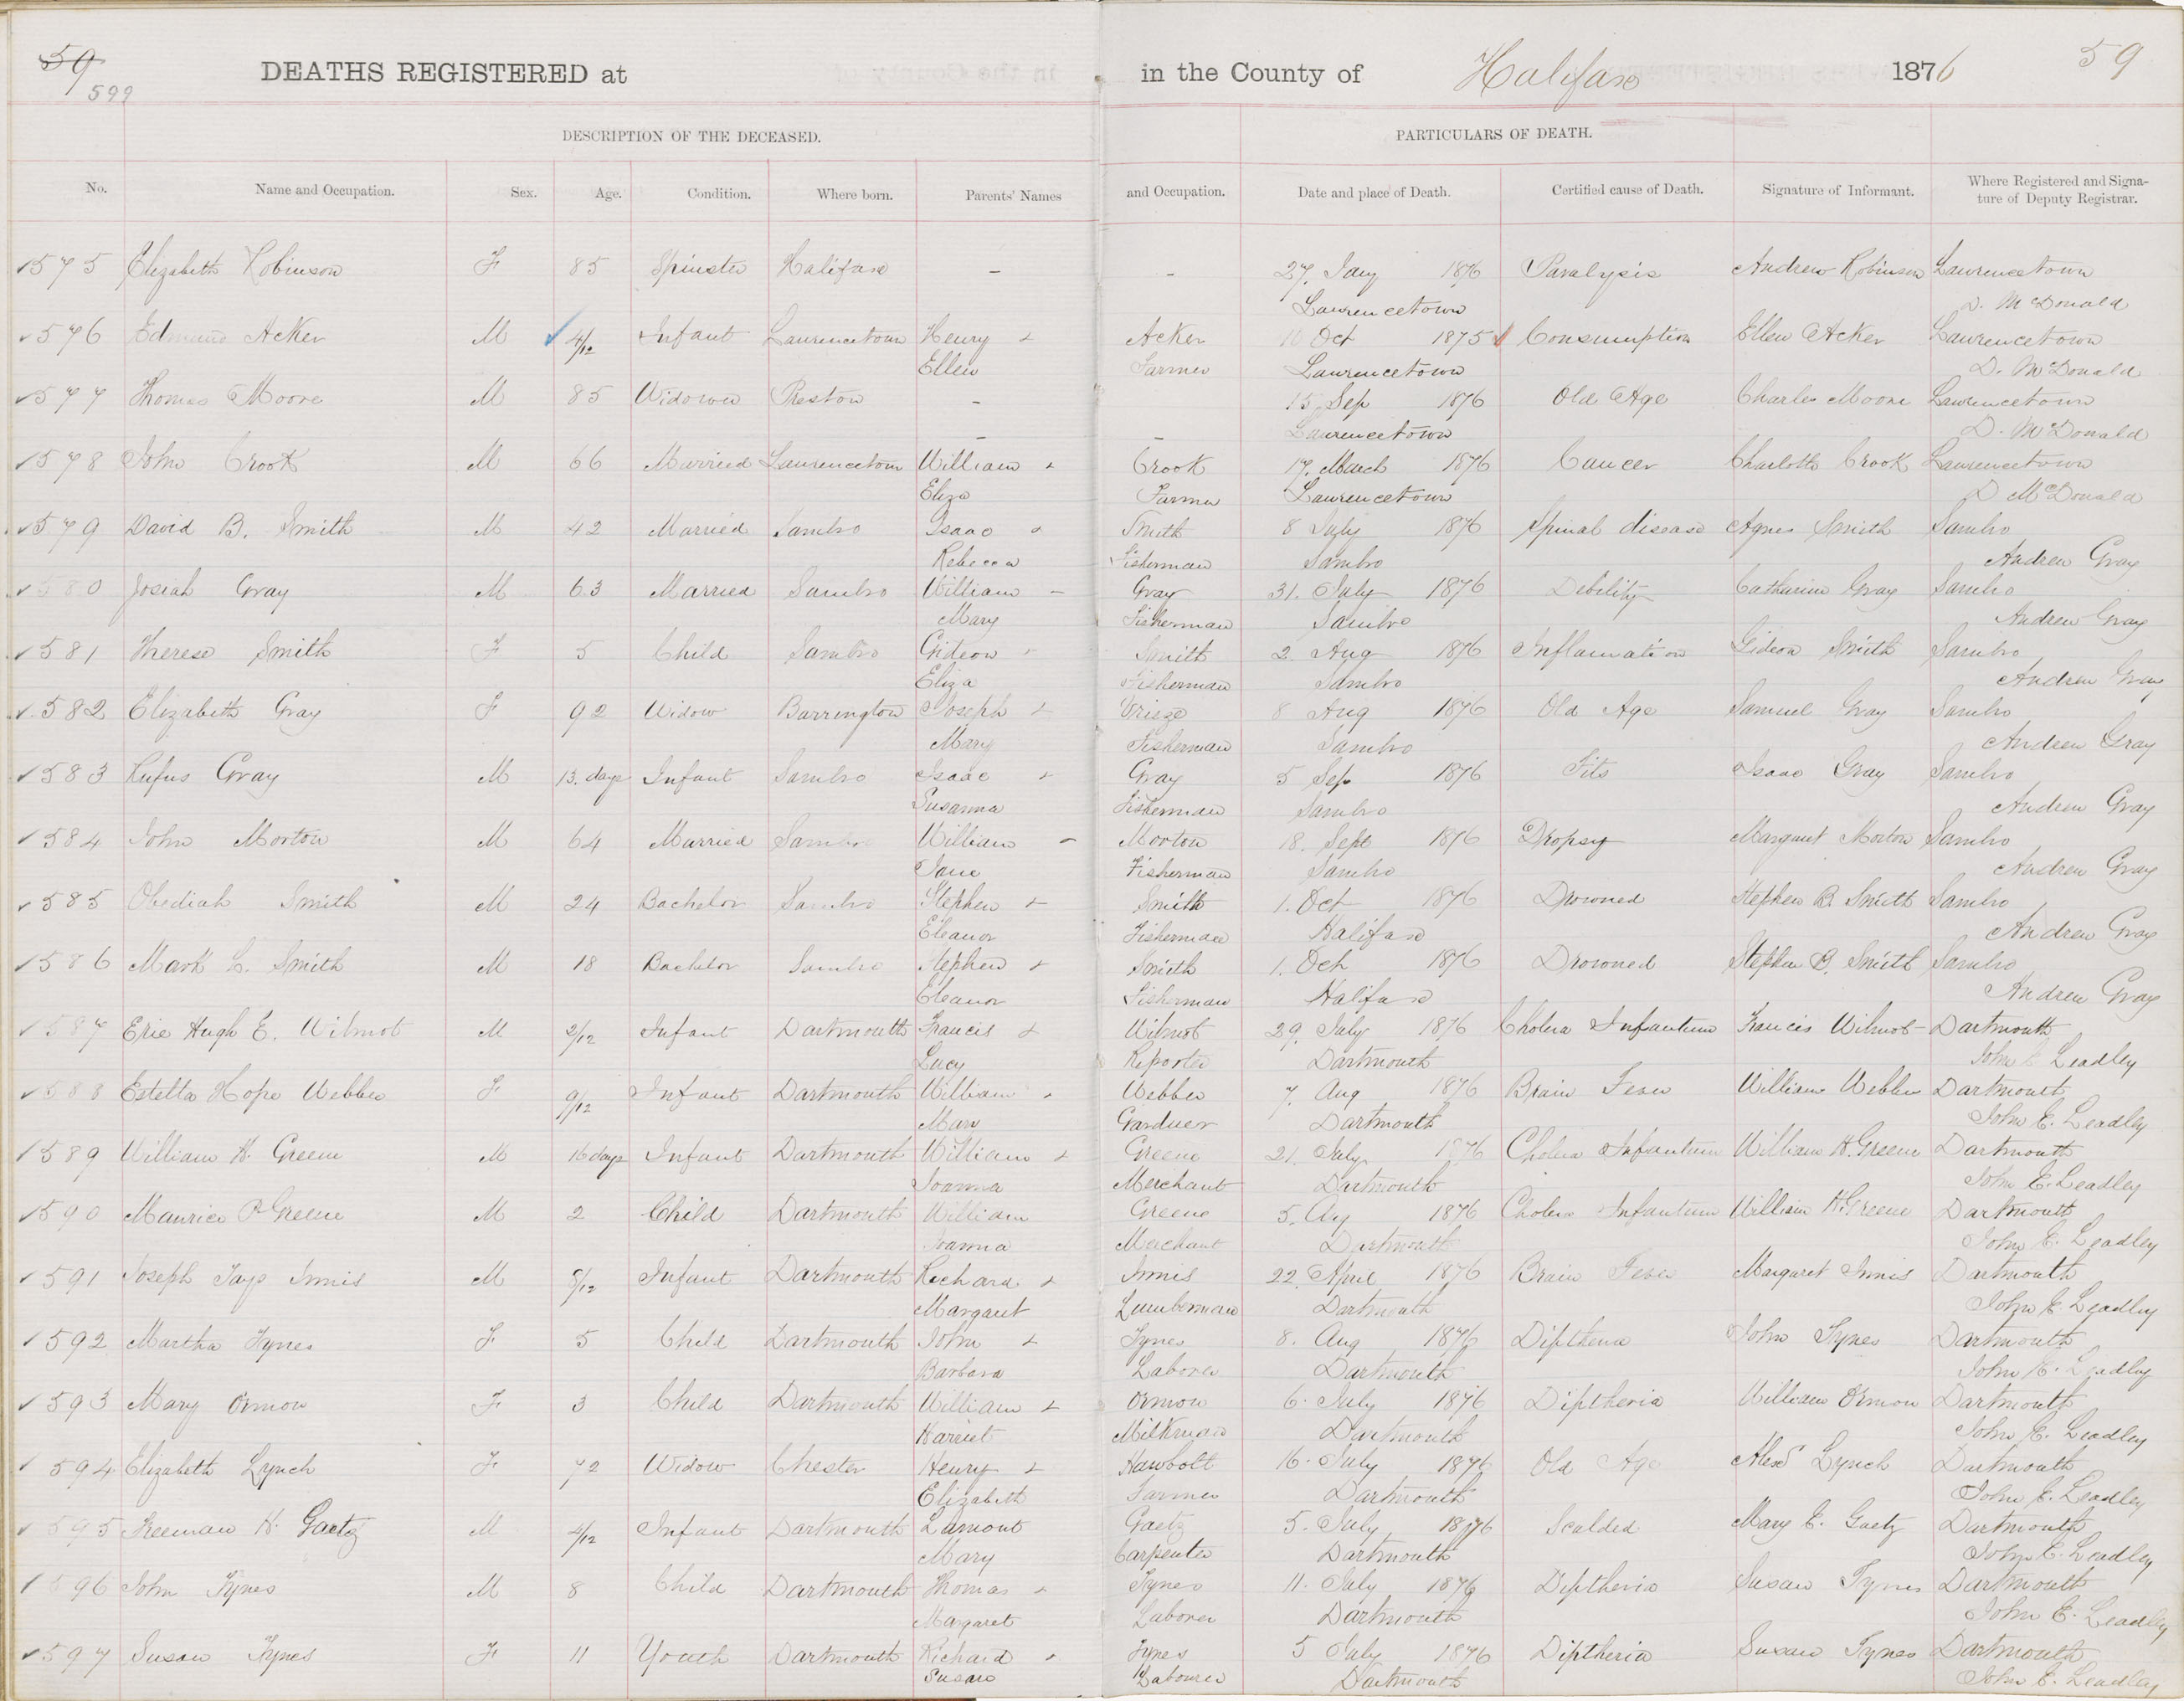 59 599 DEATHS REGISTERED at in the County of Halifax 1876 59
DESCRIPTION OF THE DECEASED. PARTICULARS OF DEATH.
No. Name and Occupation. Sex. Age. Condition. Where born. Parents' Names and Occupation. Date and place of Death. Certified cause of Death. Signature of Informant. Where Registered and Signa-
ture of Deputy Registrar.
575 Elizabeth Robinson F 85 Spinster Halifax - - 27. Jany 1876 Paralysis Andrew Robinson Lawrencetown
Lawrencetown D. McDonald
576 Edmund Acker M 4/12 Infant Lawrencetown Henry + Acker 10 Oct 1875 Consumption Ellen Acker Lawrencetown
Ellen Farmer Lawrencetown D. McDonald
577 Thomas Moore M 85 Widower Preston - 15 Sep 1876 Old Age Charles Moore Lawrencetown
- - Lawrencetown D. McDonald
578 John Crook M 66 Married Lawrencetown William + Crook 17. March 1876 Cancer Charlotte Crook Lawrencetown
Eliza Farmer Lawrencetown D McDonald
579 David B. Smith M 42 Married Sambro Isaac + Smith 8 July 1876 Spinal disease Agnes Smith Sambro
Rebecca Fisherman Sambro Andrew Gray
580 Josiah Gray M 63 Married Sambro William - Gray 31. July 1876 Debility Catharine Gray Sambro
Mary Fisherman Sambro Andrew Gray
581 Therese Smith F 5 Child Sambro Gideon + Smith 2. Aug 1876 Inflamation Gideon Smith Sambro
Eliza Fisherman Sambro Andrew Gray
582 Elizabeth Gray F 92 Widow Barrington Joseph + 8 Aug 1876 Old Age Samuel Gray Sambro
Mary Fisherman Sambro Andrew Gray
583 Rufus Gray M 13. days Infant Sambro Isaac + Gray 5 Sep 1876 Fits Isaac Gray Sambro
Susanna Fisherman Sambro Andrew Gray
584 John Morton M 64 Married Sambro William - Morton 18. Sept 1876 Dropsy Margaret Morton Sambro
Jane Fisherman Sambro Andrew Gray
585 Obediah Smith M 24 Bachelor Sambro Stephen + Smith 1. Oct 1876 Drowned Stephen B. Smith Sambro
Eleanor Fisherman Halifax Andrew Gray
586 Mark L. Smith M 18 Bachelor Sambro Stephen + Smith 1. Oct 1876 Drowned Stephen B. Smith Sambro
Eleanor Fisherman Halifax Andrew Gray
587 Eric Hugh E. Wilmot M 2/12 Infant Dartmouth Francis + Wilmot 29. July 1876 Cholera Infantum Francis Wilmot Dartmouth
Lucy Reporter Dartmouth John E Leadley
588 Estella Hope Webber F 9/12 Infant Dartmouth William + Webber 7. Aug 1876 Brain Fever William Webber Dartmouth
Mary Gardner Dartmouth John E. Leadley
589 William H. Greene M 16 days Infant Dartmouth William + Greene 21. July 1876 Cholera Infantum William H. Greene Dartmouth
Joanna Merchant Dartmouth John E. Leadley
590 Maurice P Greene M 2 Child Dartmouth William Greene 5. Aug 1876 Cholera Infantum William H. Greene Dartmouth
Joanna Merchant Dartmouth John E. Leadley
591 Joseph Innis M 5/12 Infant Dartmouth Richard + Innis 22. April 1876 Brain Fever Margaret Innis Dartmouth
Margaret Lumberman Dartmouth John E. Leadley
592 Martha Tynes F 5 Child Dartmouth John + Tynes 8. Aug 1876 Diptheria John Tynes Dartmouth
Barbara Laborer Dartmouth John E. Leadley
593 Mary Ormon F 3 Child Dartmouth William + Ormon 6. July 1876 Diptheria William Ormon Dartmouth
Harriet Milkman Dartmouth John E. Leadley
594 Elizabeth Lynch F 72 Widow Chester Henry + Hawbolt 16. July 1876 Old Age Alexd Lynch Dartmouth
Elizabeth Farmer Dartmouth John E. Leadley
595 Freeman H. Gaetz M 4/12 Infant Dartmouth Lamont Gaetz 5. July 1876 Scalded Mary E. Gaetz Dartmouth
Mary Carpenter Dartmouth John E. Leadley
596 John Tynes M 8 Child Dartmouth Thomas + Tynes 11. July 1876 Diptheria Susan Tynes Dartmouth
Margaret Laborer Dartmouth John E. Leadley
597 Susan Tynes F 11 Youth Dartmouth Richard + Tynes 5 July 1876 Diptheria Susan Tynes Dartmouth
Susan Labourer Dartmouth John E. Leadley